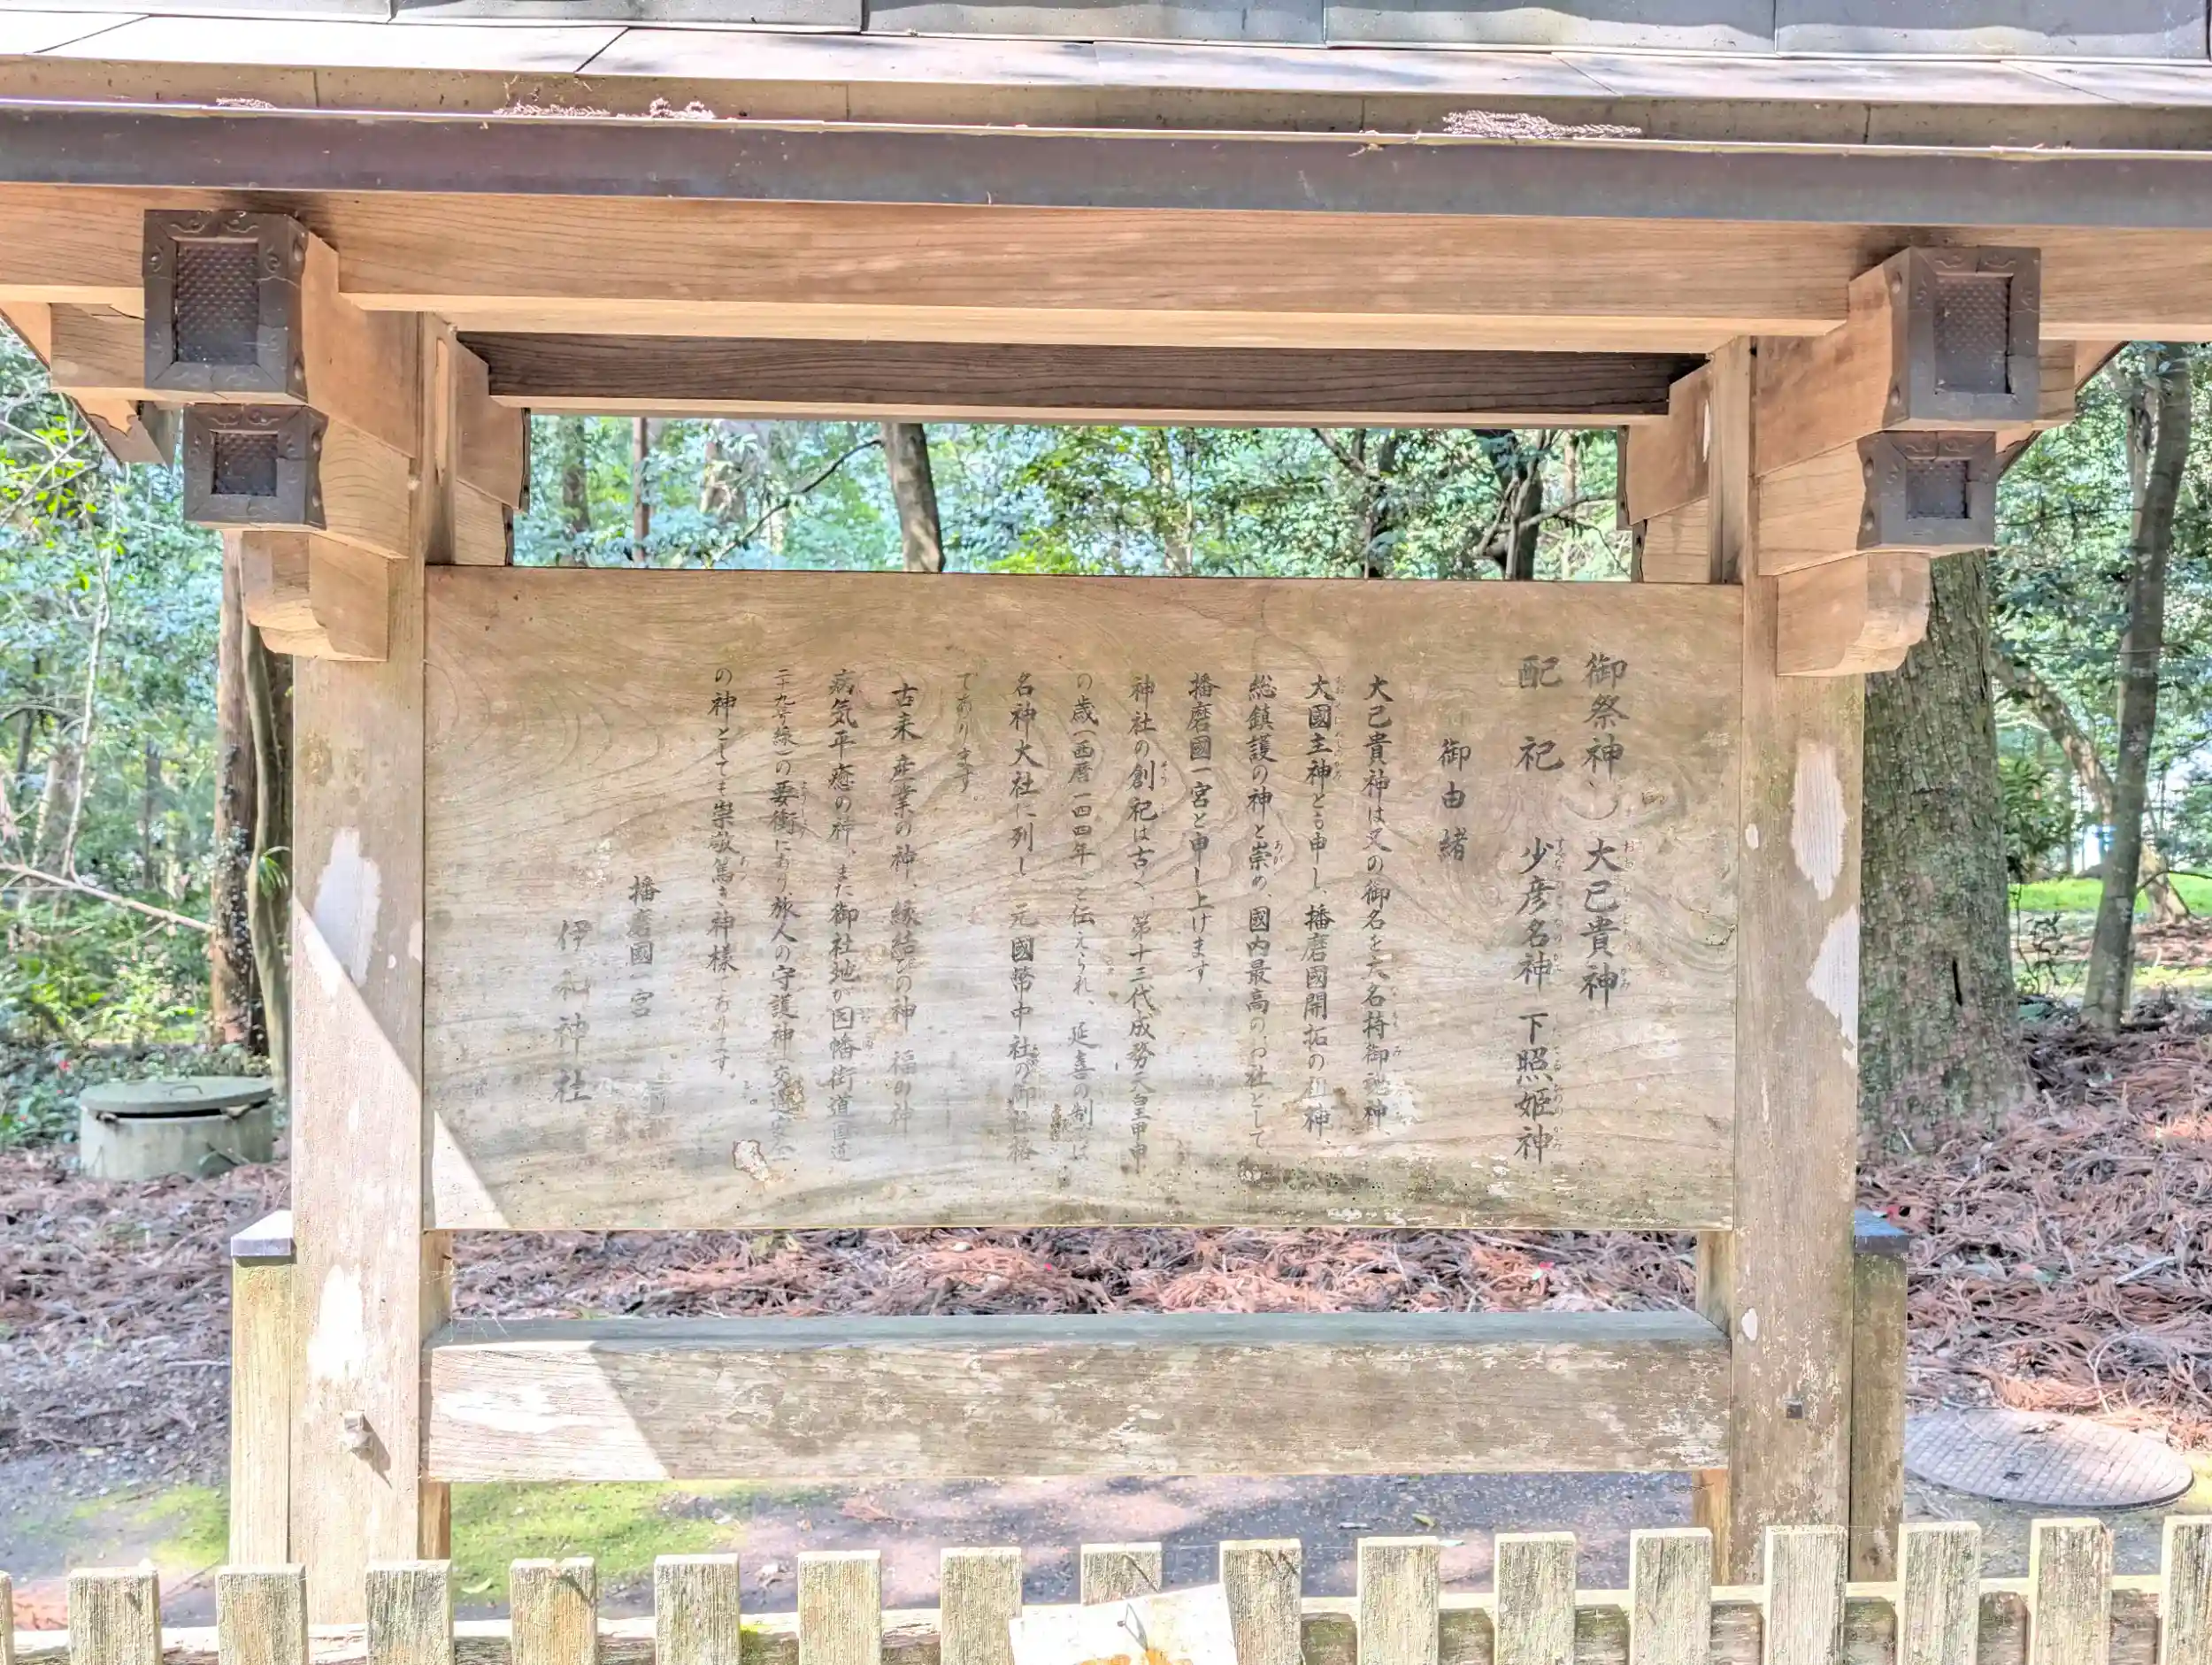 御祭神 大己貴神
配祀 少彦名神 下照姫神
御由緒
大己貴神は又の御名を大名持御神
大國主神とも申し、播磨國開拓の祖神、
総鎮護の神と崇め、國内最高のお社として
播磨國一宮と申し上げます。
神社の創祀は古く、第十三代成務天皇甲申
の歳(西暦一四四年)と伝えられ、延喜の制には
名神大社に列し 元國幣中社の御社格
であります。
古来 産業の神、縁結びの神 福の神
病気平癒の神、また御社地が因幡街道(国道
二十九号線)の要衝にあり、旅人の守護神 交通安全
の神としても崇敬篤き神様であります。
播磨國一宮
伊和神社